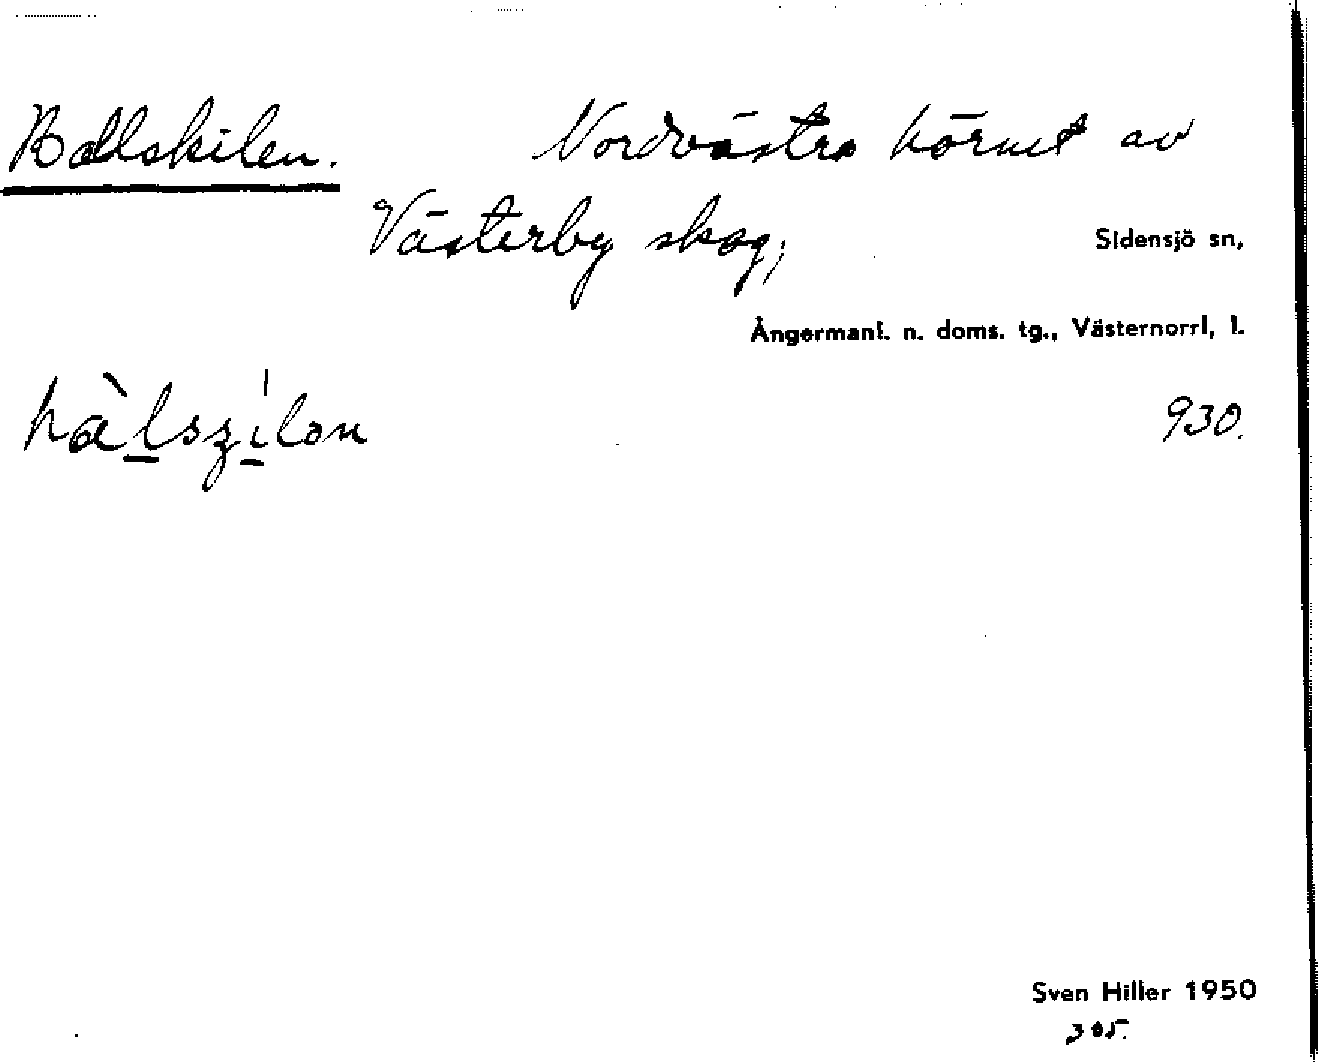 Ballskilen. Nordvästra hörnet av
Västerby skog,
Sidensjö sn,
Ångermanl. n. doms. tg., Västernorrl, l.
930.
Sven Hiller 1950
305.